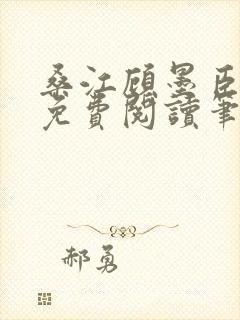 桑江顾墨臣
免費閱讀筆
郝勇